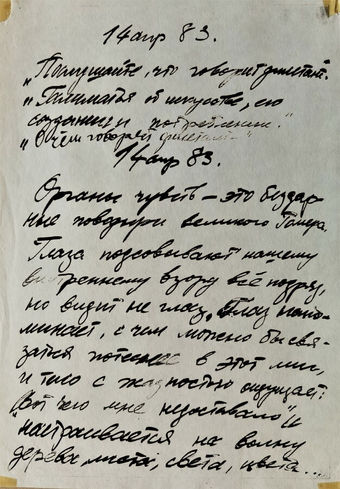 14 апр 83.
„Послушайте, что говорит дилетант".
„Галиматья об искусстве, его
создании и потреблении."
„О чём говорит дилетант"
14 апр 83.
Органы чувств – это бездар-
ные поводыри великого Гомера.
Глаза подсовывают нашему
внутреннему взору всё подряд,
но видит не глаз. Глаз напо-
минает, с чем можно бы свя-
заться потеснее в этот миг,
и тело с жадностью ощущает:
„Вот чего мне недоставало" и
настраивается на волну
дерева, листа, света, цвета...